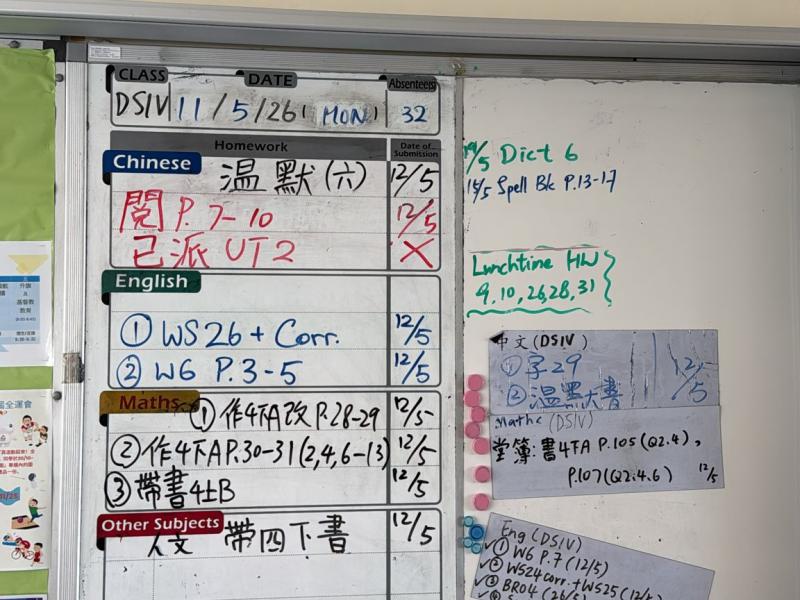 CLASS DATE Absentee(s)
DSIV 11/5/26 (MON) 32
Homework Date of Submission
Chinese
温默(六) 12/5
閱 P.7-10 12/5
已派 UT2 X
English
① WS26 + Corr. 12/5
② W6 P.3-5 12/5
Maths
① 作4下A改 P.28-29 12/5
② 作4下A P.30-31 (2,4,6-13) 12/5
③ 帶書4上B 12/5
Other Subjects
人文 帶四下書 12/5
Dict 6
Spell Bk P.13-17
Lunchtime HW
9,10,26,28,31
中文(DSIV)
① 字29 12/5
② 温默大書
Maths (DSIV)
堂簿:書4下A P.105(Q2.4),
P.107(Q2.4.6) 12/5
Eng (DSIV)
✓① W6 P.7 (12/5)
✓② WS24 Corr. + WS25 (12/5)
✓③ BR04 (26/5)